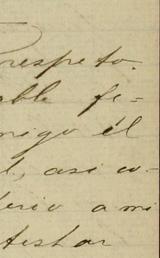 respeto.
able fe=
migo él
l, asi co-
terio a mi
testar